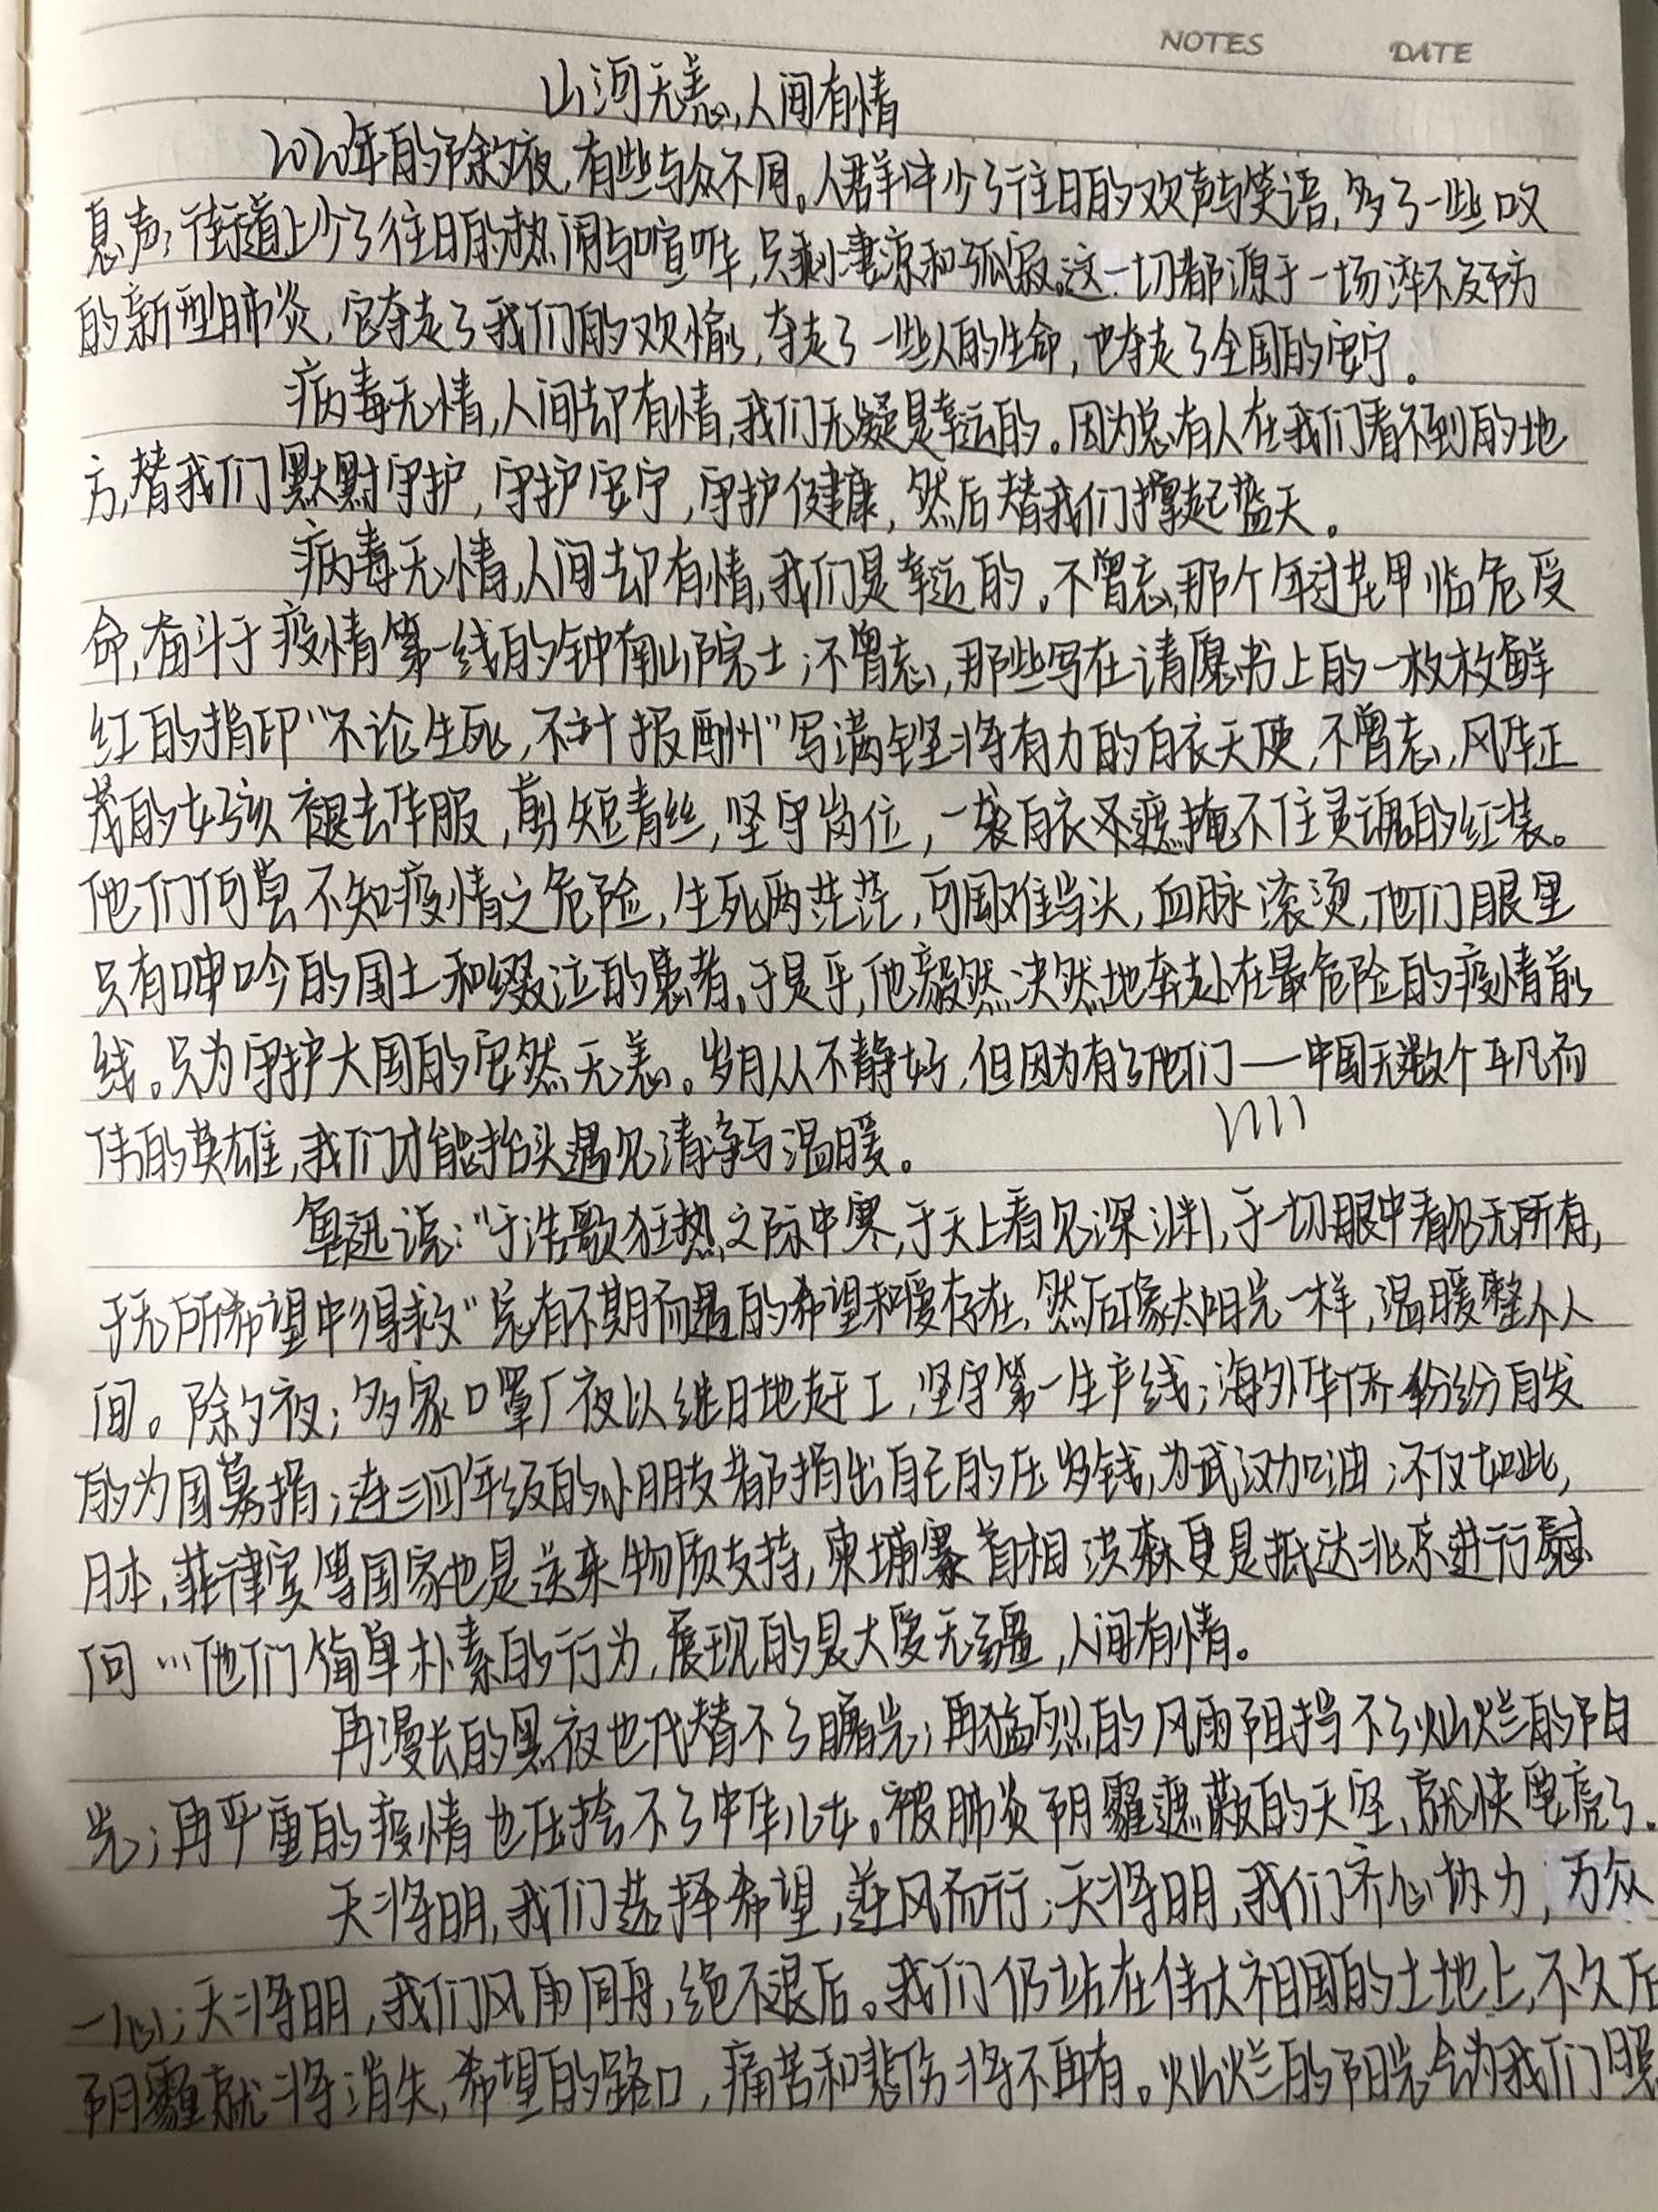 NOTES DATE
山河无恙,人间有情
2020年的除夕夜,有些与众不同。人群中少了往日的欢声与笑语,多了一些叹
息声;街道上少了往日的热闹与喧哗,只剩凄凉和孤寂。这一切都源于一场猝不及防
的新型肺炎,它夺走了我们的欢愉,夺走了一些人的生命,也夺走了全国的安宁。
病毒无情,人间却有情,我们无疑是幸运的。因为总有人在我们看不到的地
方,替我们默默守护,守护安宁,守护健康,然后替我们撑起蓝天。
病毒无情,人间却有情,我们是幸运的。不曾忘,那个年过花甲临危受
命,奋斗于疫情第一线的钟南山院士;不曾忘,那些写在请愿书上的一枚枚鲜
红的指印“不论生死,不计报酬”写满铿锵有力的白衣天使,不曾忘,风华正
茂的女孩褪去华服,剪短青丝,坚守岗位,一袭白衣终遮掩不住灵魂的红装。
他们何尝不知疫情之危险,生死两茫茫,可国难当头,血脉滚烫,他们眼里
只有呻吟的国土和缀泣的患者。于是乎,他毅然决然地奔赴在最危险的疫情前
线。只为守护大国的安然无恙。岁月从不静好,但因为有了他们——中国无数个平凡而
伟的英雄,我们才能抬头遇见清净与温暖。
鲁迅说:“于浩歌狂热之际中寒,于天上看见深渊,于一切眼中看见无所有,
于无所希望中得救”总有不期而遇的希望和爱存在,然后像太阳光一样,温暖整个人
间。除夕夜;多家口罩厂夜以继日地赶工,坚守第一生产线;海外华侨纷纷自发
的为国募捐;连三四年级的小朋友都捐出自己的压岁钱,为武汉加油;不仅如此,
日本,菲律宾等国家也是送来物质支持,柬埔寨首相洪森更是抵达北京进行慰
问…他们简单朴素的行为,展现的是大爱无疆,人间有情。
再漫长的黑夜也代替不了曙光;再猛烈的风雨阻挡不了灿烂的阳
光;再严重的疫情也压挎不了中华儿女。被肺炎阴霾遮蔽的天空,就快要亮了.
天将明,我们选择希望,逆风而行;天将明,我们齐心协力,万众
一心;天将明,我们风雨同舟,绝不退后。我们仍站在伟大祖国的土地上,不久后
阴霾就将消失,希望的路口,痛苦和悲伤将不再有。灿烂的阳光会为我们照